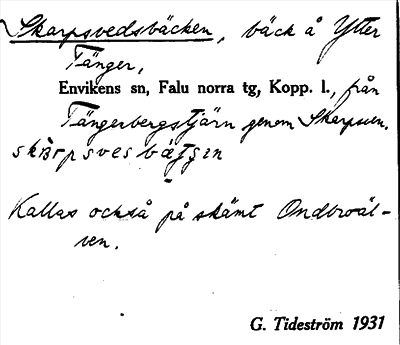 Skarpsvedsbäcken, bäck å Ytter
Tänger,
Envikens sn, Falu norra tg, Kopp. l., från
Tängerbergstjärn genom Skarpsven.
Kallas också på skämt Ondbroäl-
ven.
G. Tideström 1931